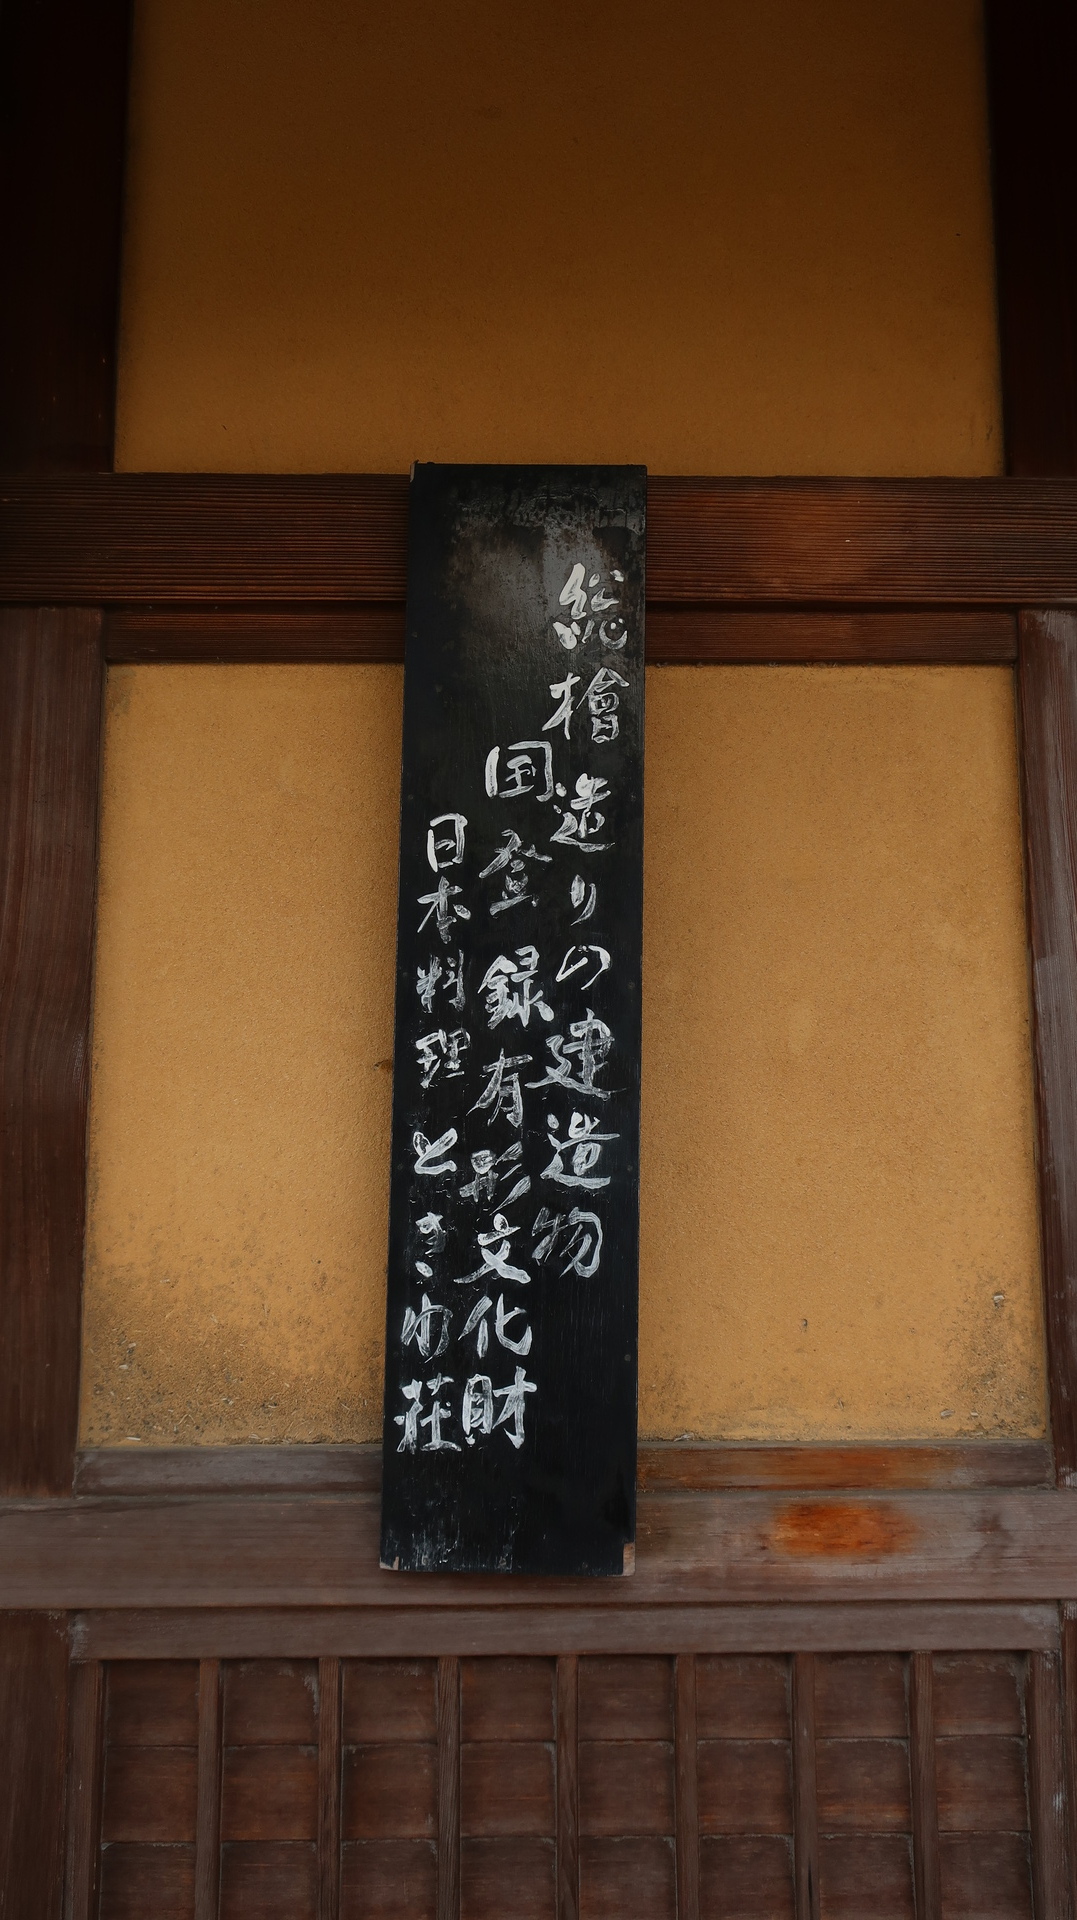 総檜造りの建造物
国登録有形文化財
日本料理ときわ荘